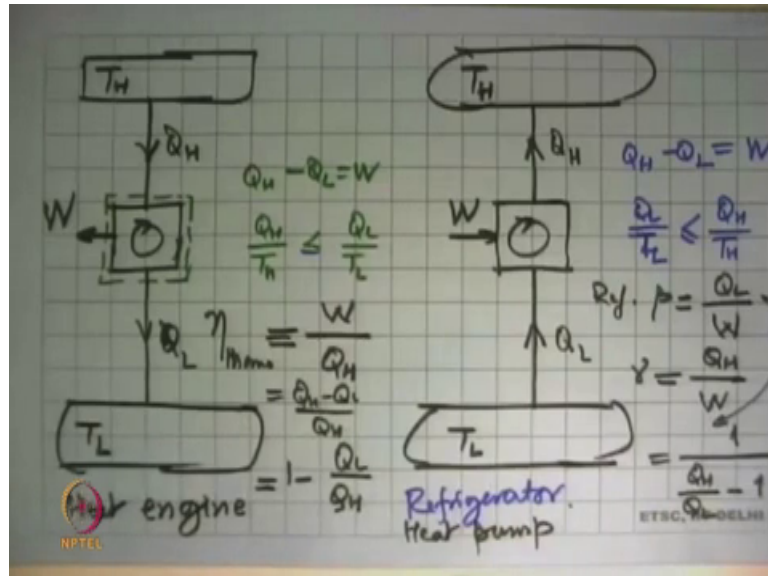 T_H
Q_H
Q_H - Q_L = W
W
Q_H/T_H ≤ Q_L/T_L
Q_L
η = W/Q_H
= (Q_H - Q_L)/Q_H
= 1 - Q_L/Q_H
T_L
engine
NPTEL
T_H
Q_H
Q_H - Q_L = W
W
Q_L/T_L ≤ Q_H/T_H
β = Q_L/W
Q_L
γ = Q_H/W
= 1/(Q_H/Q_L - 1)
T_L
Refrigerator.
Heat pump
ETSC, DELHI